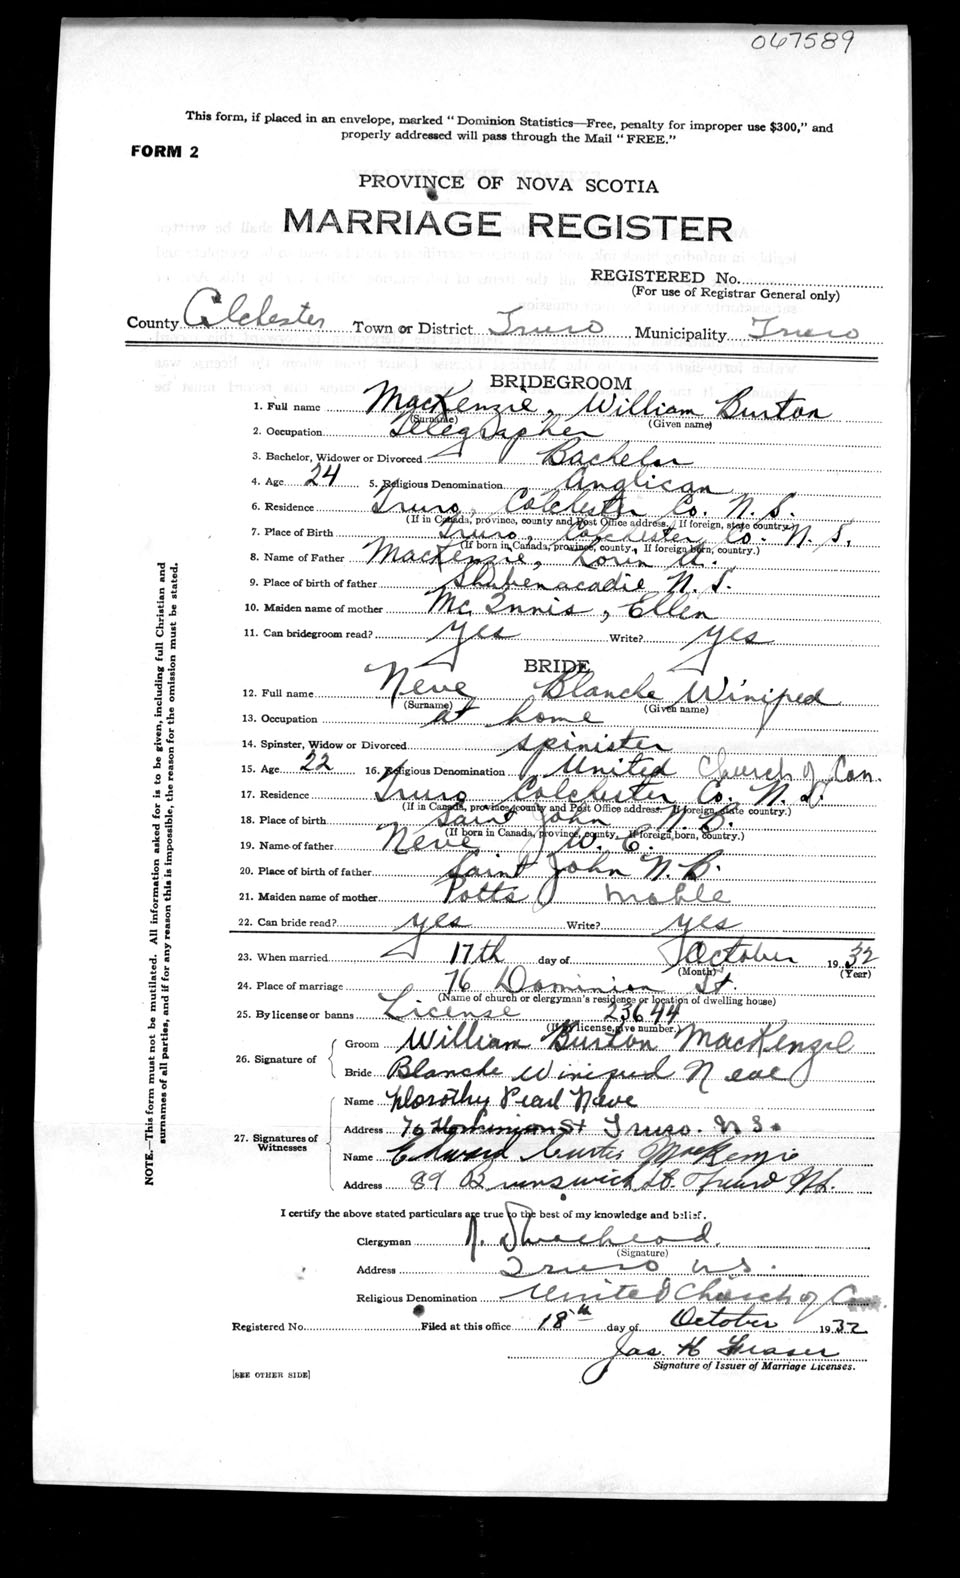 067589
This form, if placed in an envelope, marked "Dominion Statistics—Free, penalty for improper use $300," and
properly addressed will pass through the Mail "FREE."
FORM 2
PROVINCE OF NOVA SCOTIA
MARRIAGE REGISTER
REGISTERED No.
(For use of Registrar General only)
County Colchester Town or District Truro Municipality Truro
BRIDEGROOM
1. Full name MacKenzie, William Burton
(Surname) (Given name)
2. Occupation Telegrapher
3. Bachelor, Widower or Divorced Bachelor
4. Age 24 5. Religious Denomination Anglican
6. Residence Truro, Colchester Co. N. S.
(If in Canada, province, county and Post Office address. If foreign, state country.)
7. Place of Birth Truro, Colchester Co. N. S.
(If born in Canada, province, county. If foreign born, country.)
8. Name of Father MacKenzie, Loren A.
9. Place of birth of father Shubenacadie N. S.
10. Maiden name of mother McInnis, Ellen
11. Can bridegroom read? yes Write? yes
BRIDE
12. Full name Neve Blanche Winiped
(Surname) (Given name)
13. Occupation at home
14. Spinster, Widow or Divorced spinister
15. Age 22 16. Religious Denomination United Church of Can.
17. Residence Truro Colchester Co. N. S.
(If in Canada, province, county and Post Office address. If foreign, state country.)
18. Place of birth Saint John N. B.
(If born in Canada, province, county. If foreign born, country.)
19. Name of father Neve W. E.
20. Place of birth of father Saint John N. B.
21. Maiden name of mother Potts Mable
22. Can bride read? yes Write? yes
23. When married 17th day of October 1932
(Month) (Year)
24. Place of marriage 76 Dominion St.
(Name of church or clergyman's residence or location of dwelling house)
25. By license or banns License 23644
(If by license, give number.)
26. Signature of
Groom William Burton MacKenzie
Bride Blanche Winiped Neve
27. Signatures of Witnesses
Name Dorothy Pearl Neve
Address 76 St Truro. N S.
Name Edward Curtis MacKenzie
Address 89 Brunswick St. Truro NS.
I certify the above stated particulars are true to the best of my knowledge and belief.
Clergyman
(Signature)
Address Truro N S.
Religious Denomination United Church of Can.
Registered No. Filed at this office 18th day of October 1932
Jas. H Fraser
Signature of Issuer of Marriage Licenses.
[SEE OTHER SIDE]
NOTE.—This form must not be mutilated. All information asked for is to be given, including full Christian and
surnames of all parties, and if for any reason this is impossible, the reason for the omission must be stated.